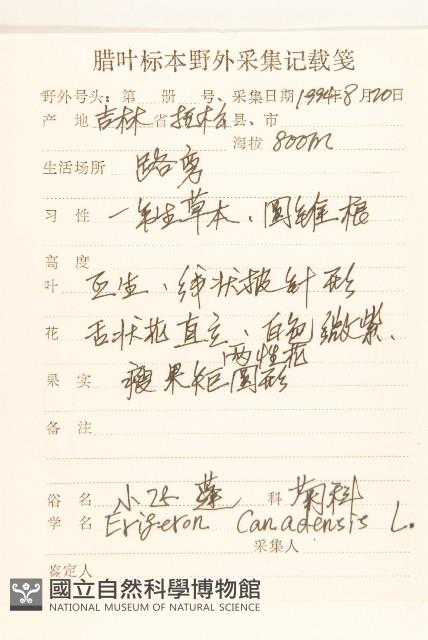 腊叶标本野外采集记载笺
野外号头：第 册 号、采集日期1994年8月20日
产 地 吉林 省 抚松 县、市
海拔 800m
生活场所 路旁
习 性 一年生草本、圆锥根
高 度
叶 互生、线状披针形
花 舌状花直立、白色微紫、
两性花
果 实 瘦果矩圆形
备 注
俗 名 小飞蓬 科 菊科
学 名 Erigeron Canadensis L.
采集人
鉴定人
國立自然科學博物館
NATIONAL MUSEUM OF NATURAL SCIENCE